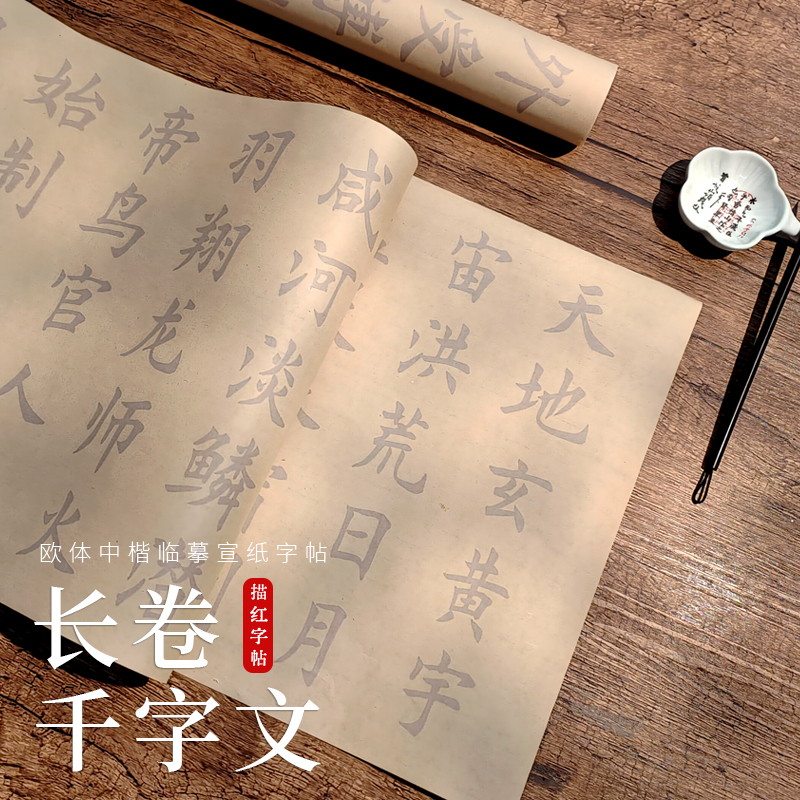 天地玄黄宇
宙洪荒日月
咸河淡鳞
羽翔龙师火
帝鸟官人
始制
外受
欧体中楷临摹宣纸字帖
长卷
描红字帖
千字文